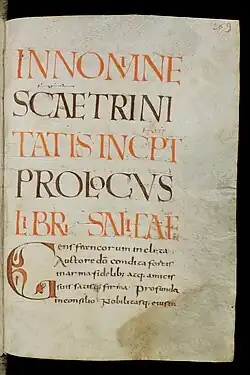 269
IN NOMINE
SCAE TRINI
TATIS INCPT
PROLOCVS
LIBRI SALICAE
Gens francorum inclita
Auctore do condita fortis
in arma fidelibs atq amicis
suis satisq firma Profunda
in consilio Nobilitasq eius in